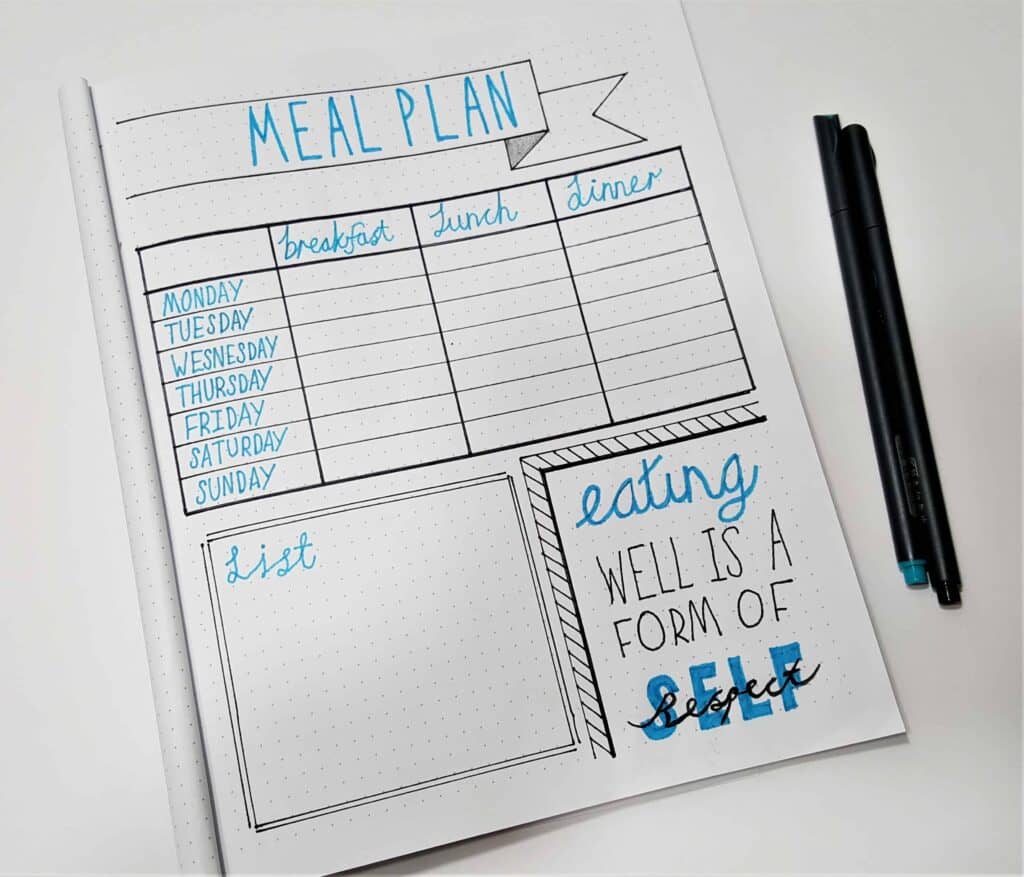 MEAL PLAN
breakfast Lunch Dinner
MONDAY
TUESDAY
WESNESDAY
THURSDAY
FRIDAY
SATURDAY
SUNDAY
List
eating
WELL IS A
FORM OF
SELF
Respect